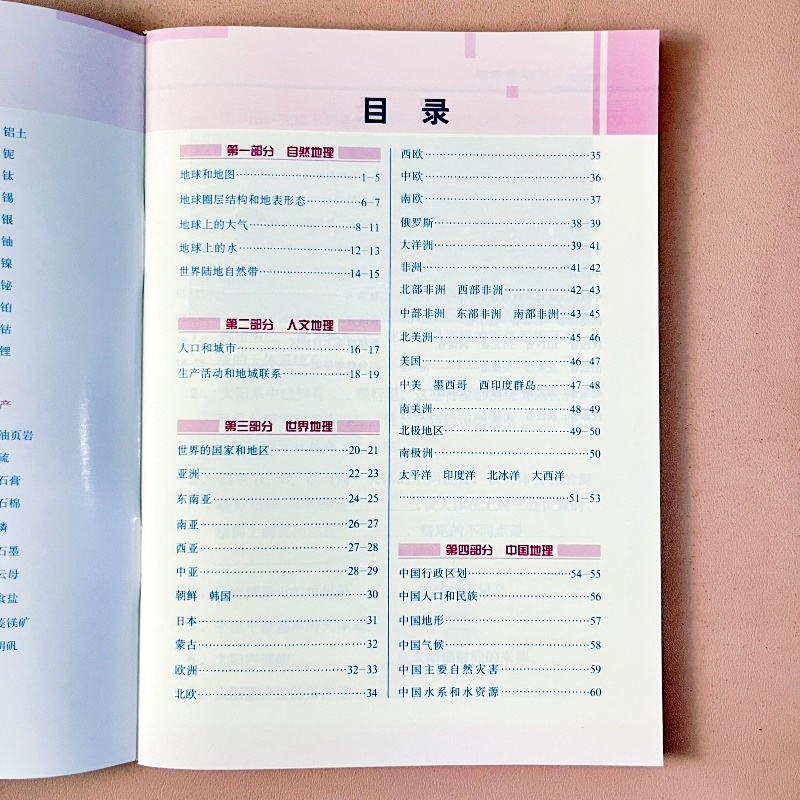 铝土
铌
钛
锡
银
铀
镍
铋
铂
钴
锂
产
油页岩
硫
石膏
石棉
磷
石墨
云母
食盐
菱镁矿
明矾
目 录
第一部分 自然地理
地球和地图……1-5
地球圈层结构和地表形态……6-7
地球上的大气……8-11
地球上的水……12-13
世界陆地自然带……14-15
第二部分 人文地理
人口和城市……16-17
生产活动和地域联系……18-19
第三部分 世界地理
世界的国家和地区……20-21
亚洲……22-23
东南亚……24-25
南亚……26-27
西亚……27-28
中亚……28-29
朝鲜 韩国……30
日本……31
蒙古……32
欧洲……32-33
北欧……34
西欧……35
中欧……36
南欧……37
俄罗斯……38-39
大洋洲……39-41
非洲……41-42
北部非洲 西部非洲……42-43
中部非洲 东部非洲 南部非洲……43-45
北美洲……45-46
美国……46-47
中美 墨西哥 西印度群岛……47-48
南美洲……48-49
北极地区……49-50
南极洲……50
太平洋 印度洋 北冰洋 大西洋
……51-53
第四部分 中国地理
中国行政区划……54-55
中国人口和民族……56
中国地形……57
中国气候……58
中国主要自然灾害……59
中国水系和水资源……60